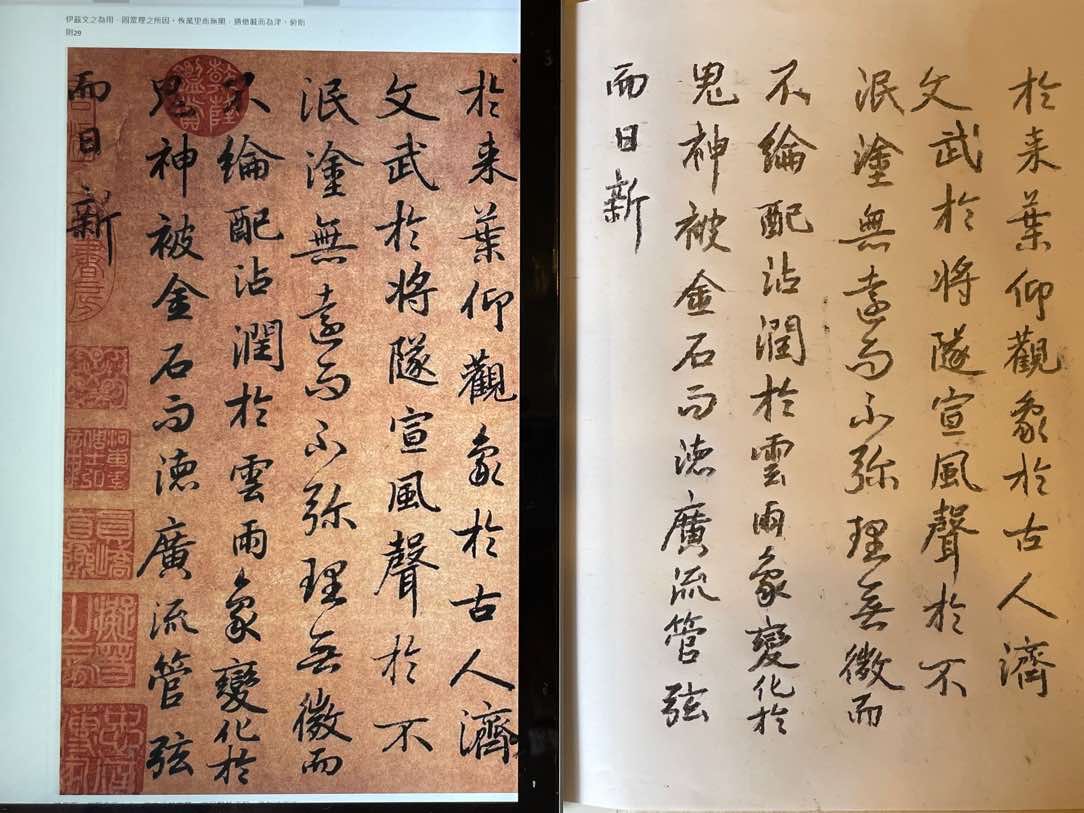 伊茲文之為用，固眾理之所因。恢萬里而無閡，通億載而為津。俯貽
則29
於来葉仰觀象於古人濟
文武於將隧宣風聲於不
泯塗無遠而不弥理無微而
不綸配沾潤於雲雨象變化於
鬼神被金石而徳廣流管弦
而日新
乾隆鑑賞
於来葉仰觀象於古人濟
文武於將隧宣風聲於不
泯塗無遠而不弥理無微而
不綸配沾潤於雲雨象變化於
鬼神被金石而徳廣流管弦
而日新